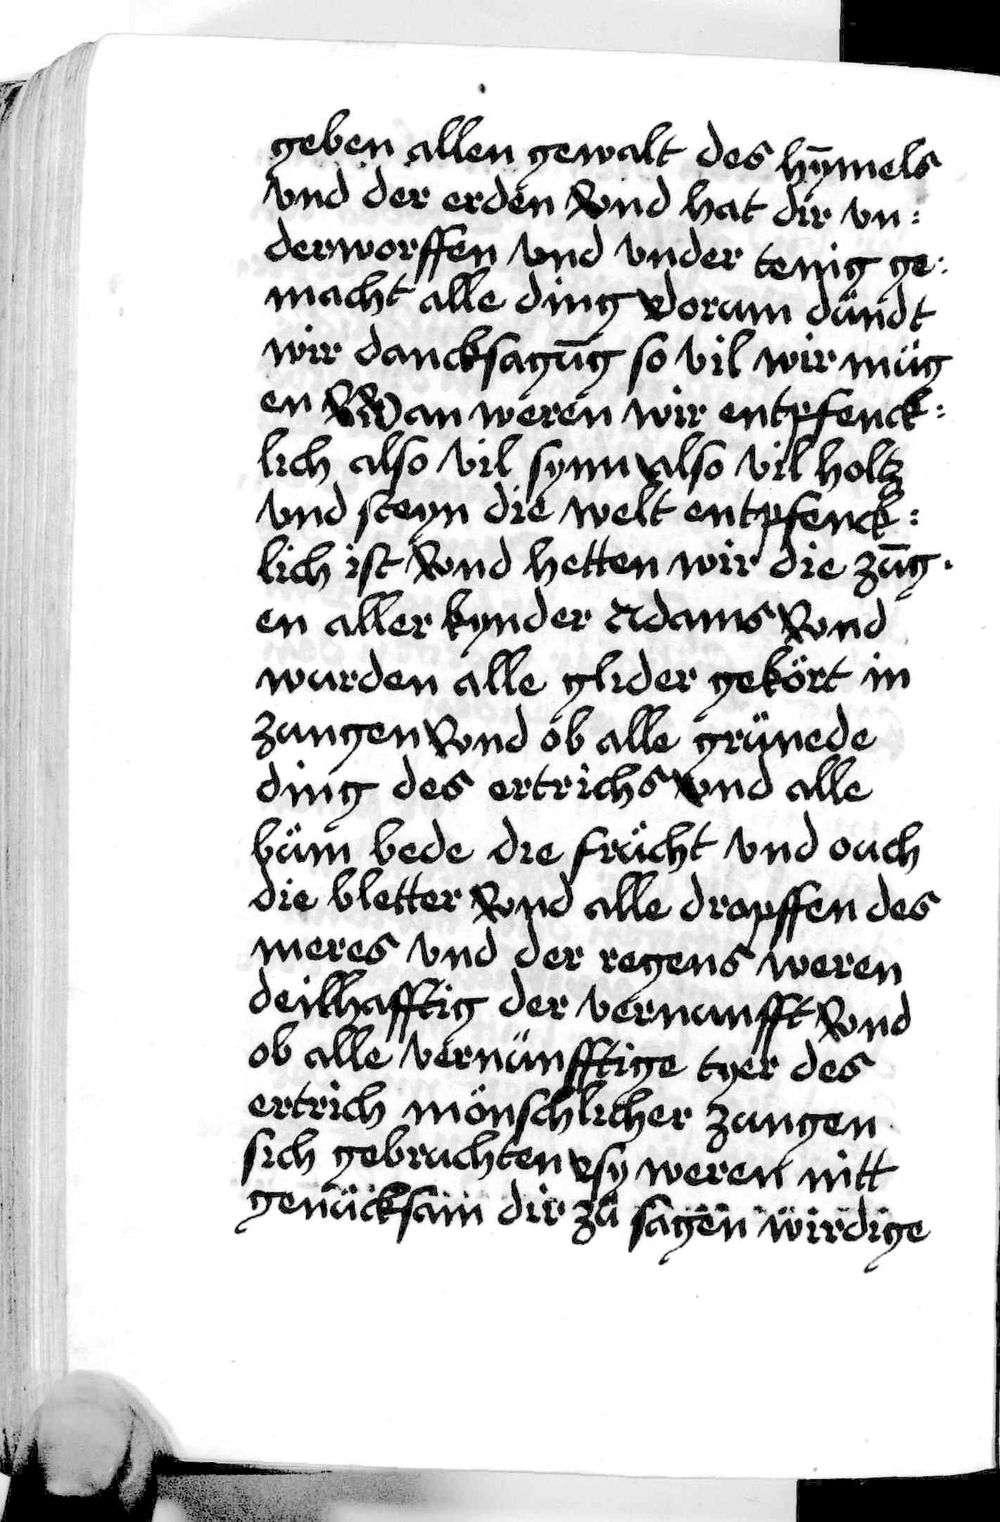 geben allen gewalt des hȳmels
vnd der erden Vnd hat dir vn:
derworffen vnd vnder tenig ge:
macht alle ding Dorum dündt
wir dancksagūg so vil wir müg
en Wan weren wir entpfenck:
lich also vil synn also vil holtz
vnd steyn die welt entpfenck:
lich ist Vnd hetten wir die zūg.
en aller kynder Adams Vnd
wurden alle glider gekört in
zungen Vnd ob alle grünede
ding des ertrichs vnd alle
büm bede die frücht vnd ouch
die bletter Vnd alle dropffen des
meres vnd der regens weren
deilhafftig der vernunfft Vnd
ob alle vernünfftige tyer des
ertrich mönschlicher zungen
sich gebruchten sy weren nitt
genücksam dir zü sagen wirdige